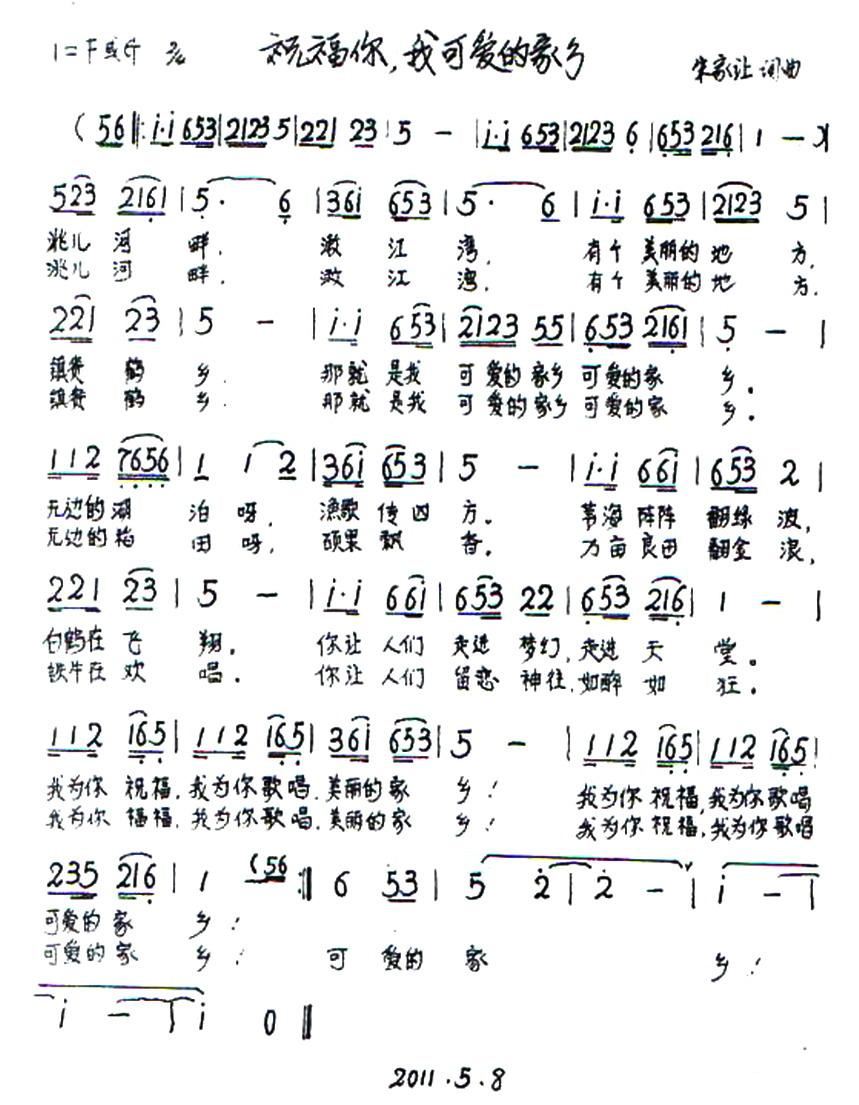 1=F或G 2/4 祝福你,我可爱的家乡 朱家让 词曲
( 56 ‖: i·i 653 | 2123 5 | 221 23 | 5 — | i·i 653 | 2123 6 | 653 216 | 1 — )
523 2161 | 5· 6 | 361 653 | 5· 6 | i·i 653 | 2123 5 |
洮儿河畔, 嫩江湾, 有个美丽的地方,
洮儿河畔, 嫩江湾, 有个美丽的地方,
221 23 | 5 — | i·i 653 | 2123 55 | 653 2161 | 5 — |
镇赉鹤乡. 那就是我可爱的家乡可爱的家乡。
镇赉鹤乡. 那就是我可爱的家乡可爱的家乡。
112 7656 | 1 12 | 36i 653 | 5 — | i·i 66i | 653 2 |
无边的湖泊呀, 渔歌传四方。 苇海阵阵翻绿波,
无边的稻田呀, 硕果飘香。 万亩良田翻金浪,
221 23 | 5 — | i·i 66i | 653 22 | 653 216 | 1 — |
白鹤在飞翔。 你让人们走进梦幻,走进天堂。
铁牛在欢唱。 你让人们留恋神往,如醉如狂。
112 165 | 112 165 | 36i 653 | 5 — | 112 165 | 112 165 |
我为你祝福,我为你歌唱,美丽的家乡! 我为你祝福,我为你歌唱
我为你福福,我为你歌唱,美丽的家乡! 我为你祝福,我为你歌唱
235 216 | 1 (56 :‖ 6 53 | 5 2 | 2 — | i — |
可爱的家乡!
可爱的家乡! 可爱的家乡!
i — | i 0 ‖
2011.5.8